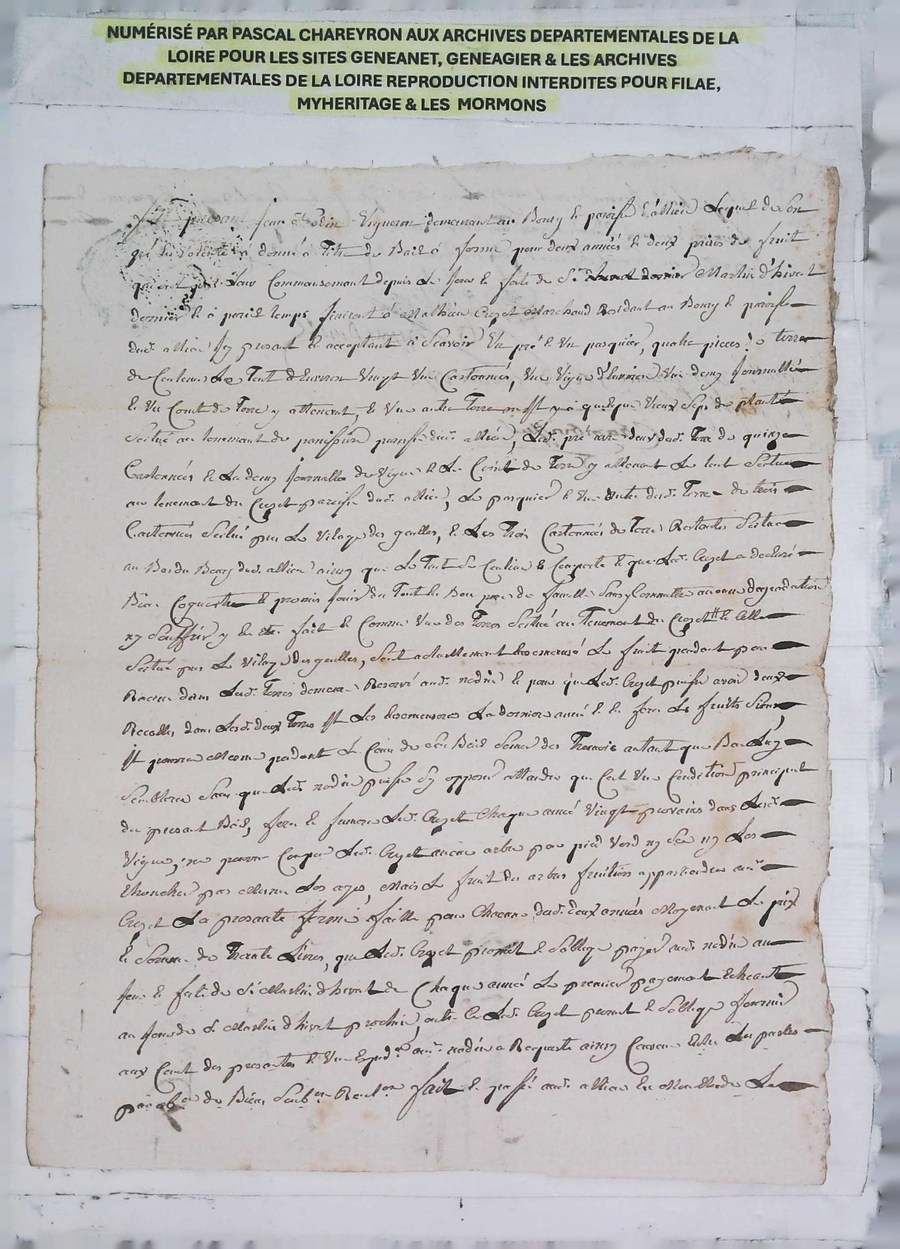 NUMÉRISÉ PAR PASCAL CHAREYRON AUX ARCHIVES DEPARTEMENTALES DE LA
LOIRE POUR LES SITES GENEANET, GENEAGIER & LES ARCHIVES
DEPARTEMENTALES DE LA LOIRE REPRODUCTION INTERDITES POUR FILAE,
MYHERITAGE & LES MORMONS
Jean Vigneron demeurant au Bourg & paroisse d'allieu Lequel de son
gré & volonté a donné a titre de Bail a ferme pour deux années & deux prises de fruit
qui ont pris Leur Commansemant depuis Le Jour & feste de St Martin d'hivert
dernier & a pareil temps finiront a Mathieu Crozet Marchand Residant au Bourg & paroisse
dud. allieu Icy presant & acceptant a Scavoir Un pré & Un pasquier, quatre pieces de terre
de Contenus Le Tout d'Environ Vingt Une Cartonnées, Une Vigne d'Environ Une demy Journallée
& Un Coint de Terre y attenent & Une autre Terre ou Il y a quelque Vieux Seps de plante
Scitué au tenement de paroisse dud. allieu, Led. pré avec deux dud. Terre de quinze
Cartonnées & La demy Journallée de Vigne & Le Coint de Terre y attenant Le tout Scitue
au tenement du Crozet paroisse dud. allieu, Le pasquier & Une autre dud. Terre de trois
Cartonnées Scitué pres Le Village des gouttes, & Les Trois Cartonnées de Terre Restantes Scitue
au Bas du Bourg dud. allieu ainsy que Le Tout Se Contient & Comporte & que Led. Crozet a declaré
Bien Cognoitre & promis Jouir du Tout En Bon pere de famille Sans y Commettre aucune degradation
ny Souffrir y Etre fait & Comme Une des Terres Scitué au Tenement du Crozet & Celle
Scitué pres Le Village des goutes, Sont actuellement Le fruit pendant par
Racine dans Lesd. Terres demeure Reservé aud. nodin & pour que Led. Crozet puisse avoir deux
Recoltes dans Lesd. deux Terres Il Les La derniere année & fera Les fruits Siens,
Il pourra Mesme pendant Le Cours de Son Bail Semer des autant que Bon Luy
Semblera Sans que Led. nodin puisse S'y opposer attendu que C'est Une Condition principal
du presant Bail, fera & fumera Led. Crozet Chaque année Vingt provains dans Lad.
Vigne, ne pourra Couper Led. Crozet aucun arbre par pied Verd ny Sec ny Les
pas Mesme Les ayes, Mais Le fruit des arbres fruitiers appartiendra aud.
Crozet La presante ferme faitte pour Chacune desd. deux années Moyenant Le prix
& Somme de Trente Livres, que Led. Crozet promet & S'oblige payer aud. nodin au
Jour & feste de St Martin d'hivert de Chaque année Le premier payement Echeant
au Jour de St Martin d'hivert prochin, outre Ce Led. Crozet promet & S'oblige fournir
aux Cout des presantes & Une aud. nodin a Requeste ainsy Convenu Entre Les parties
de Biens fait & passé aud. allieu En